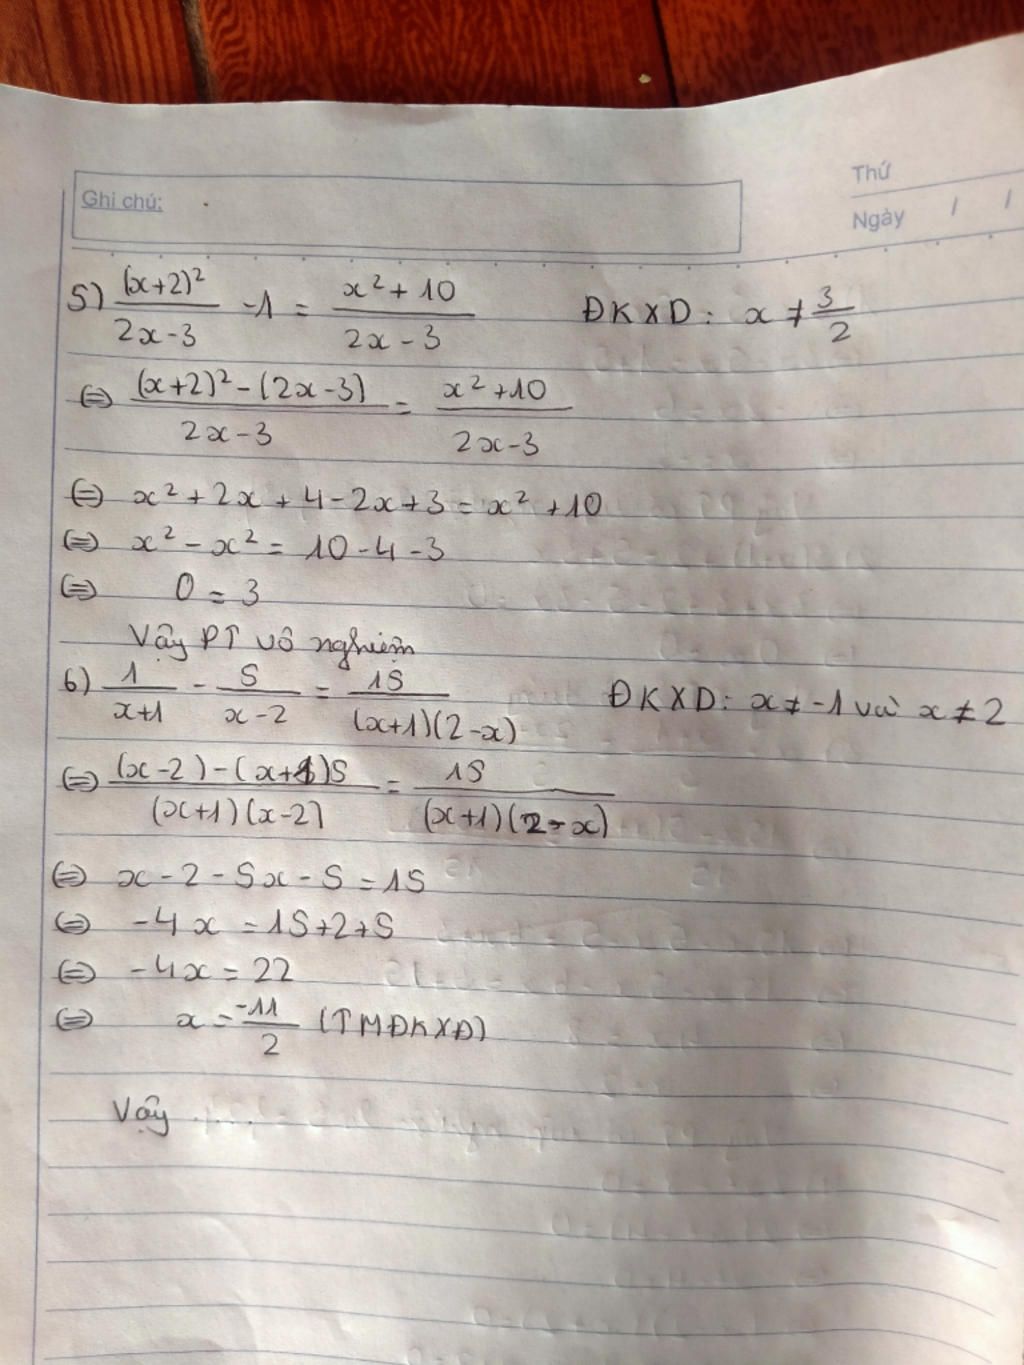 Thứ
Ghi chú:
Ngày / /
5) (x+2)²/(2x-3) -1 = (x²+10)/(2x-3) ĐKXD: x ≠ 3/2
(=) ((x+2)²-(2x-3))/(2x-3) = (x²+10)/(2x-3)
(=) x²+2x+4-2x+3=x²+10
(=) x²-x²=10-4-3
(=) 0=3
Vậy PT vô nghiệm
6) 1/(x+1) - 5/(x-2) = 15/((x+1)(2-x)) ĐKXD: x≠-1 và x≠2
(=) ((x-2)-(x+1)5)/((x+1)(x-2)) = 15/((x+1)(2-x))
(=) x-2-5x-5=15
(=) -4x=15+2+5
(=) -4x=22
(=) x=-11/2 (TMĐKXĐ)
Vậy